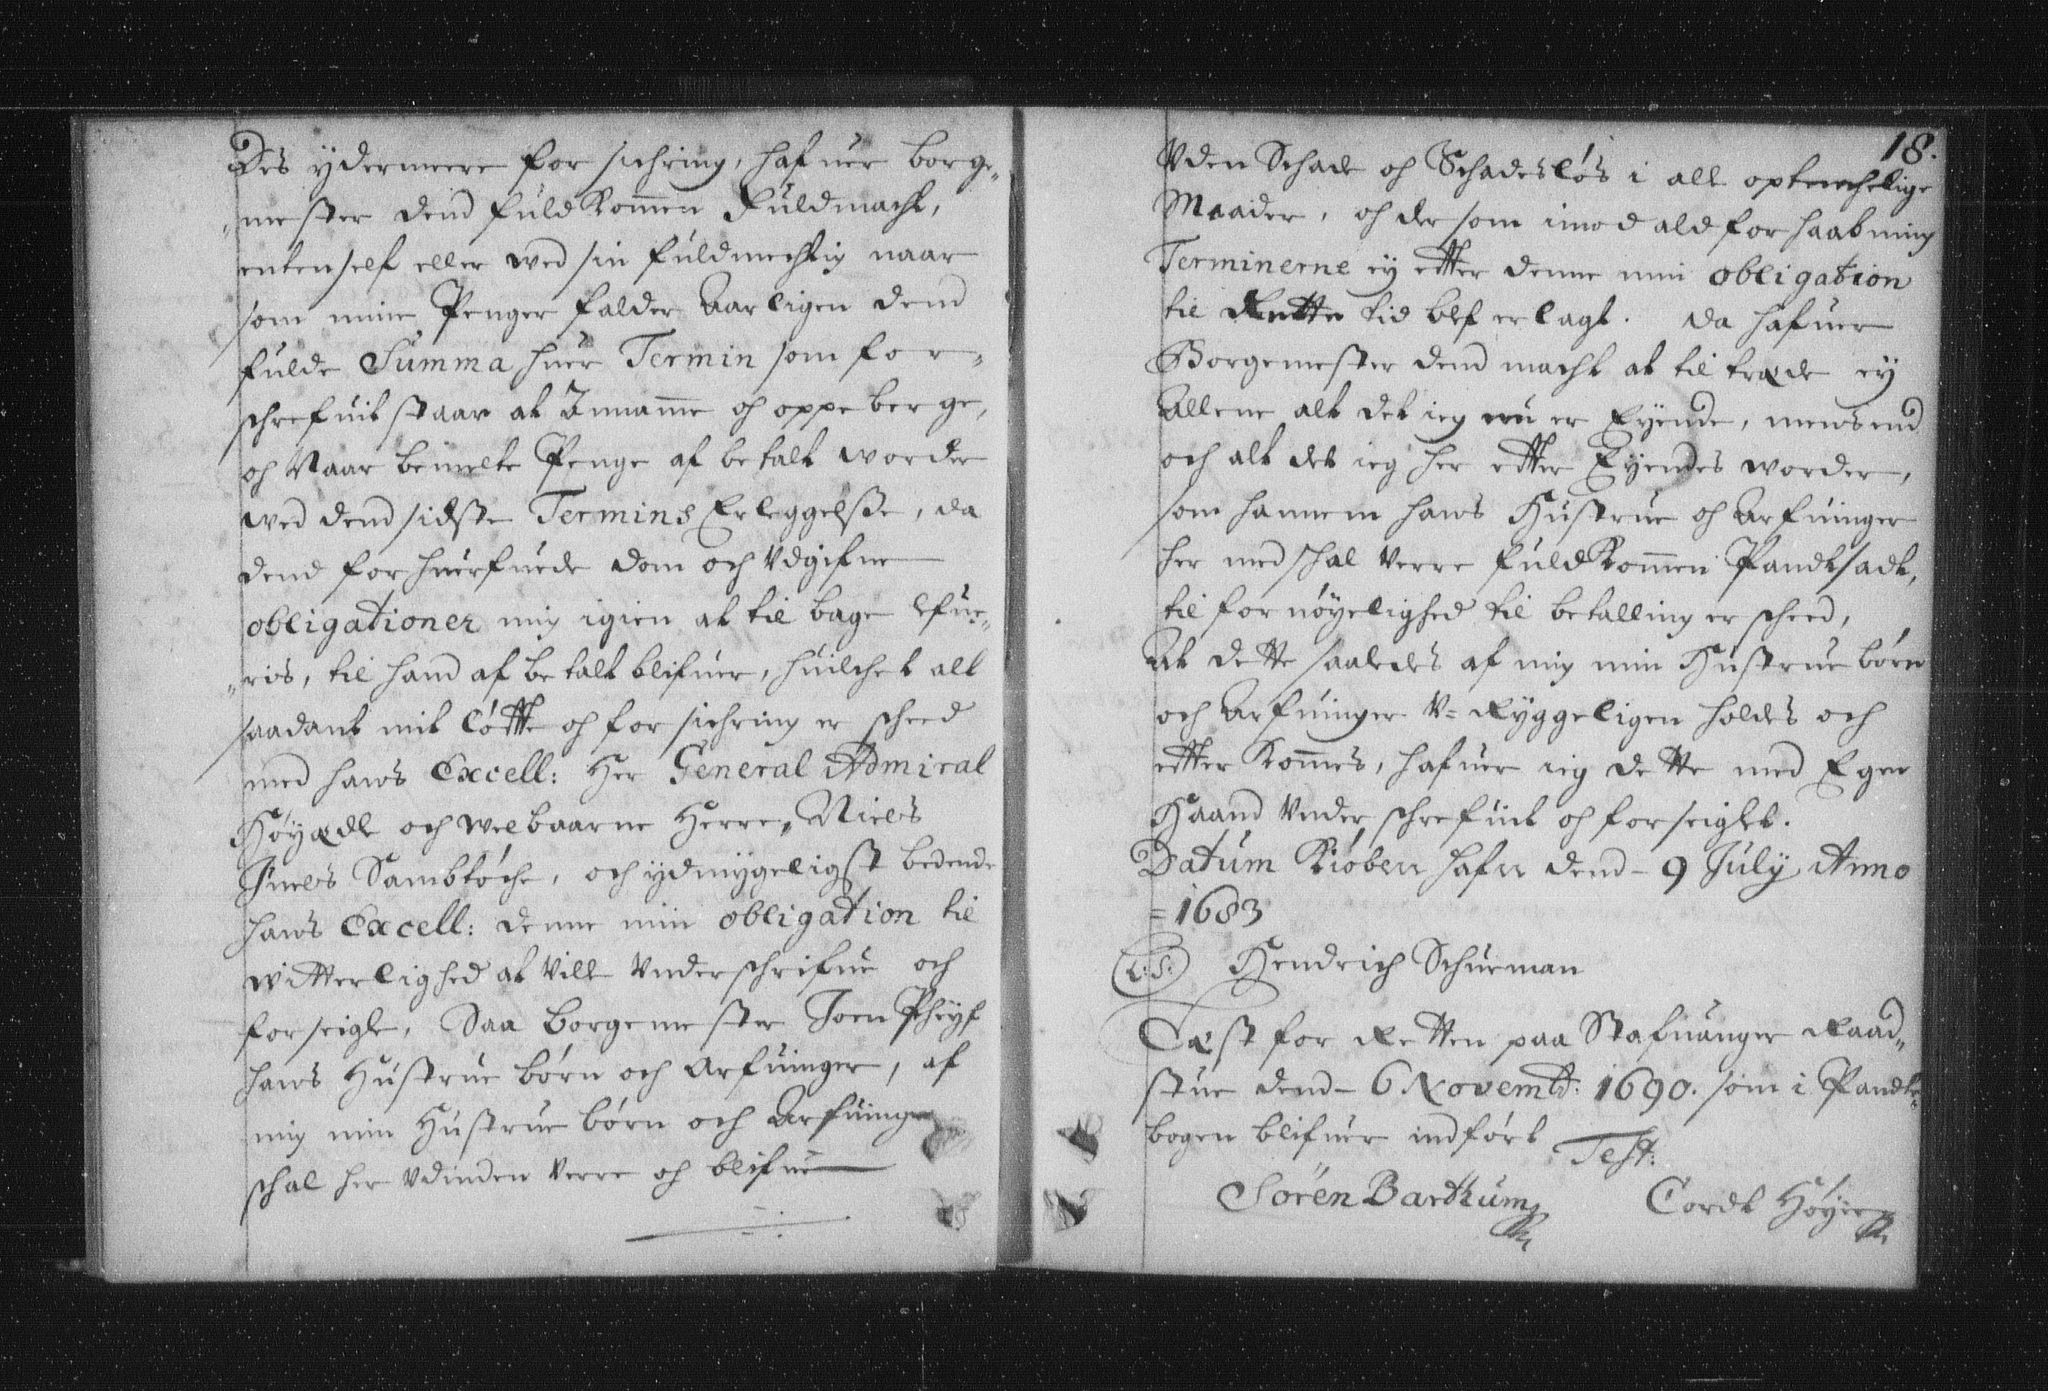 Des ydermeere forsichring, hafuer borge„
„mester dend fuldkommen Fuldmacht,
enten self eller wed sin fuldmechtig naar
som mine Penger falder Aarligen dend
fulde Summa huer Termin som for„
schrefuit staar at Innamme och oppeberge,
och Naar bemelte Penge afbetalt worder
wed dend sidste Termins Erleggelsse, da
dend forhuerfuede dom och Vdgifne
obligationer mig igien at tilbage lefue„
„ris, til hand afbetalt blifuer, huilchet alt
saadant mit løtte och forsichring er scheed
med hans Excell: Her General Admiral
Høyædl och welbaarne Herre, Niels
Juels Sambtøche, och ydmygeligst bedende
hans Excell: denne min obligation til
witterlighed at vilt Vnderschrifue och
forseigle, Saa borgemester Joen Pheyf
hans Hustrue børn och Arfuinger, af
mig min Hustrue børn och Arfuinger
schal her Vdinden verre och blifue
18.
Vden Schade och Schadesløs i alt optenchelige
Maader, och dersom imod ald forhaabning
Terminerne ey etter denne min obligation
til Rette tid blef erlagt. da hafuer
Borgemester dend macht at tiltræde ey
Allene alt det ieg nu er Eyende, mens end
och alt det ieg her etter Eyendes worder,
som hannem hans Hustrue och Arfuinger
her med schal verre fuldkommen Pandtsadt,
til fornøyelighed til betalling er scheed,
At dette saaledes af mig min Hustrue børn
och Arfuinger V=Ryggeligen holdes och
etterkommes, hafuer ieg dette med Egen
Haand Vnderschrefuit och forseiglet.
Datum Kiøbenhafn dend - 9 July Anno
= 1683
L:S: Hendrich Schueman
Læst for Retten paa Stafuanger Raad„
stue dend - 6 Novemb: 1690. som i Pandte„
bogen blifuer indført
Test:
Sören Barthum Cordt Høyer